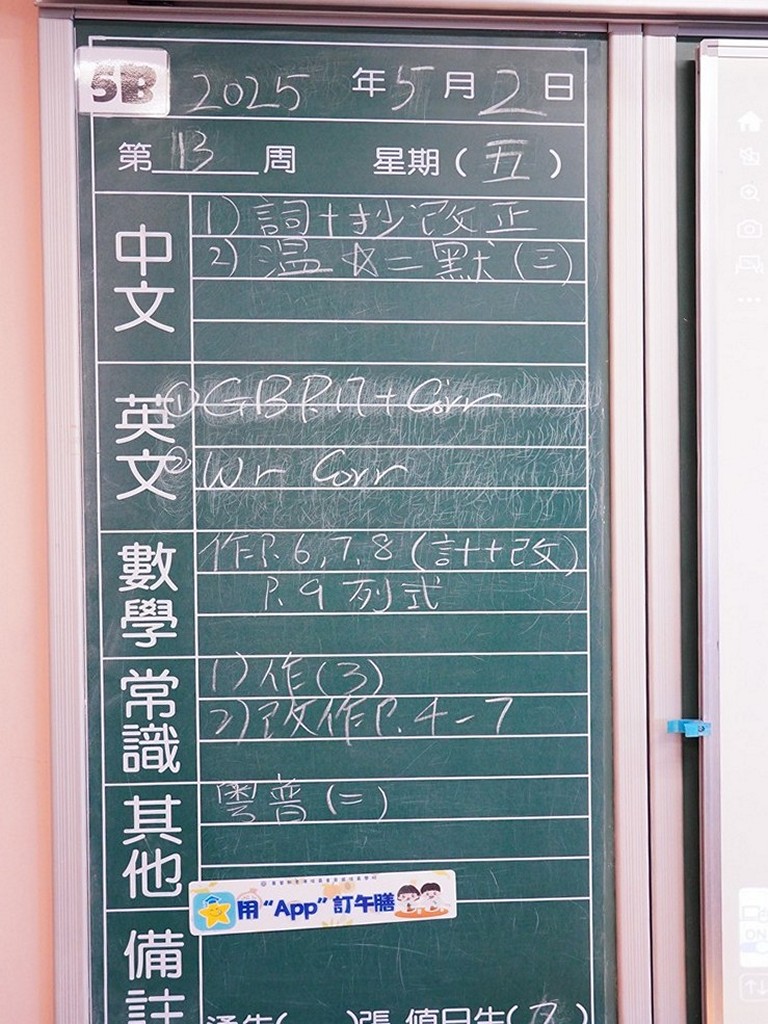 5B 2025 年 5 月 2 日
第 13 周 星期 ( 五 )
中文
1) 詞+抄改正
2) 温☆二默(三)
英文
① GB P.17 + Corr
② Wr Corr
數學
作P. 6, 7, 8 (計++改)
P. 9 列式
常識
1) 作(3)
2) 改作P. 4-7
其他
粵普(二)
用 “App” 訂午膳
備註
通告( )張 值日生( 7 )
ON